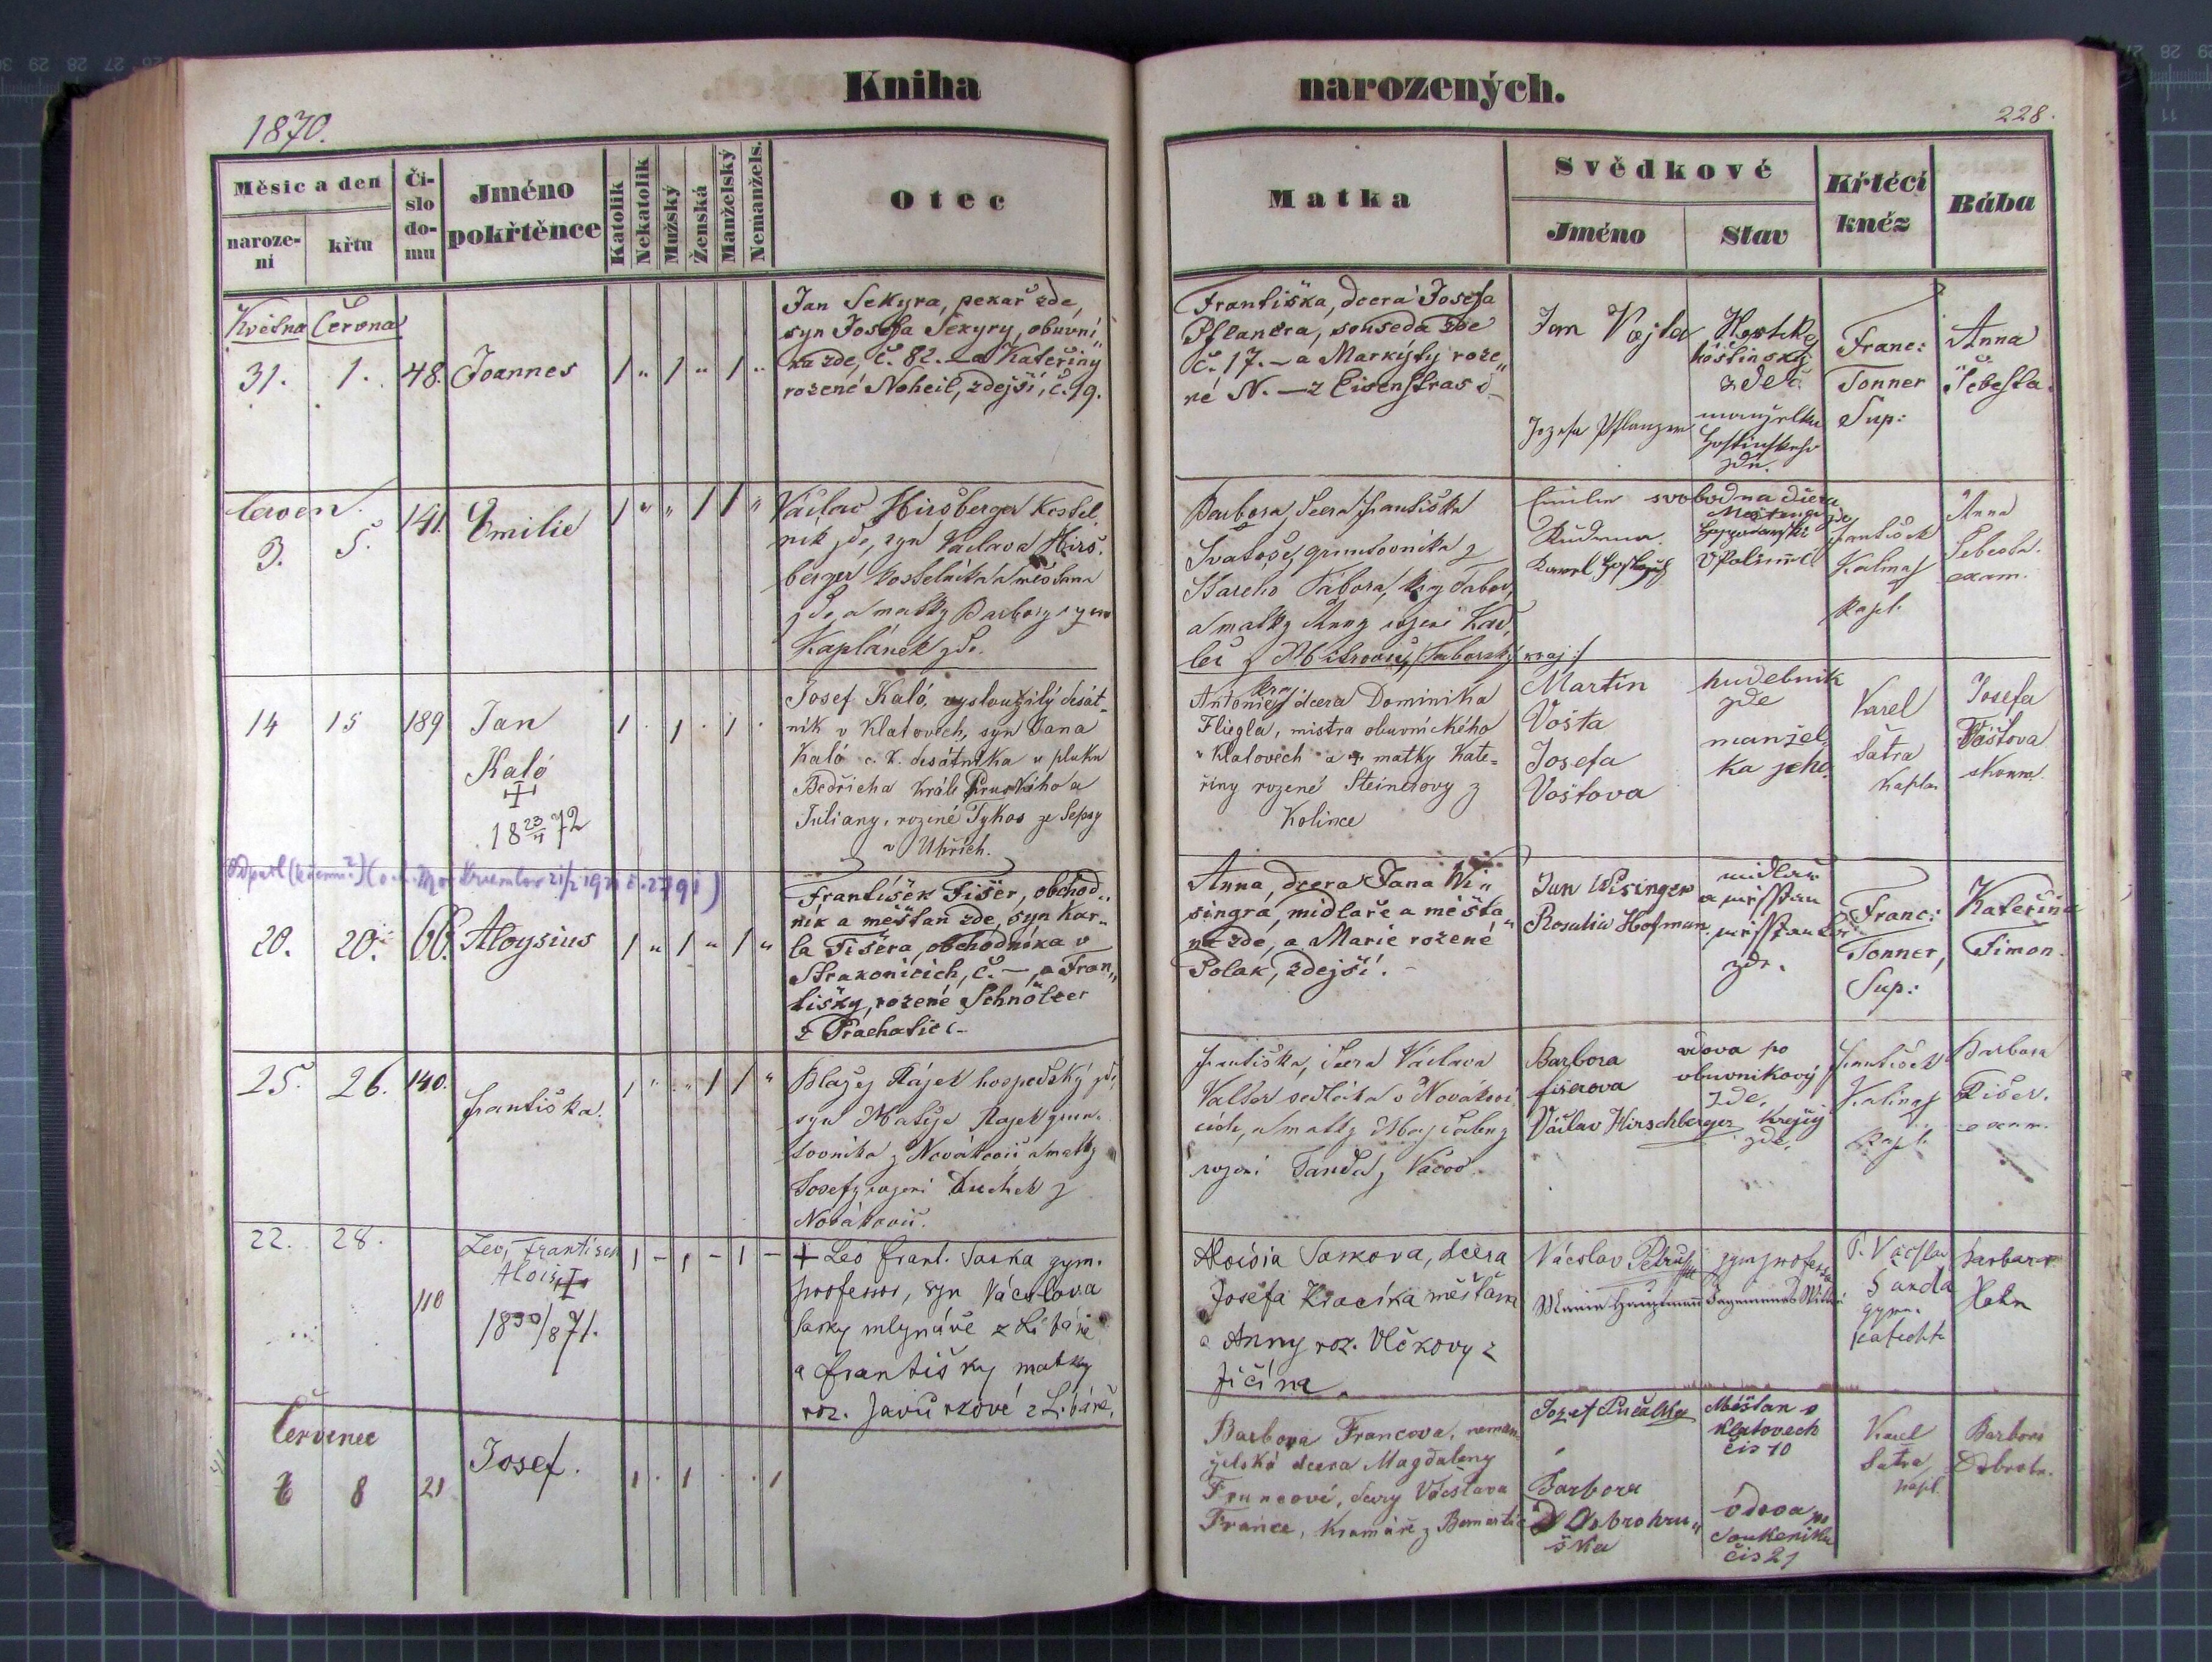 Kniha
narozených.
1870.
228.
Měsíc a den
naroze-
ni
křtu
Či-
slo
do-
mu
Jméno
pokřtěnce
Katolík
Nekatolík
Mužský
Ženská
Manželský
Nemanžels.
Otec
Matka
Svědkové
Jméno
Stav
Křtěcí
kněz
Bába
Května Června
31. 1. 48. Joannes
Jan Sekyra, pekař zde,
syn Josefa Sekyry, obuvní„
ka zde, č. 82. — a Kateřiny
rozené Noheil, zdejší, č. 19.
Františka, dcera Josefa
Pflanera, souseda zde
č. 17. — a Markýty roze„
né N. — z Eisenstras
Jan Vojta
hostinský
zde
Josefa Pflanzer
manželka
hostinského
zde.
Franc:
Tonner
Sup:
Anna
Šebesta.
Červen.
3. 5. 141. Emilie
Václav Hirsberger kostel„
ník zde, syn Václava Hirs„
berger kostelníka a měšťana
zde a matky Barbory
Kaplánek zde.
Barbora, dcera Františka
Svatoše, gruntovníka z
Starého Tábora, kraj Tabor,
a matky Anny rození
kraj:/
Emilie
Karel
svobodna dcera
František
Kalina
kapl.
Anna
Šebesta.
exam.
14 15 189 Jan
Kaló
18 23/4 72
Josef Kaló, vysloužilý desát„
ník v Klatovech, syn Jana
Kaló c. k. desátníka u pluku
Bedřicha krále Pruského a
Juliany, rozené Tykos ze Sepsy
v Uhřích.
Antonie, dcera Dominika
Fliegla, mistra obuvnického
v Klatovech a matky Kate-
řiny rozené Steinerovy z
Kolince
Martin
Vošta
Josefa
Voštova
hudebník
zde
manžel„
ka jeho.
Karel
Šatra
kaplan
Josefa
Voštova
zkoum.
20. 20. 66. Aloysius
František Fišer, obchod„
ník a měšťan zde, syn Kar„
la Fišera, obchodníka v
Strakonicích, č. —, a Fran„
tišky, rozené Schnölzer
z Prachatic č —
Anna, dcera Jana Wi„
singra, midlaře a měšťa„
na zde, a Marie rozené
Polak, zdejší. —
Jan Wisinger
Rosalia Hofman.
midlař
a měšťan
zde.
Franc:
Tonner,
Sup:
Kateřina
Simon.
25. 26. 140.
Františka.
Blažej Rájek hospodský zde,
syn Matěje Rajek grun„
tovníka z Novákovic a matky
Josefy rození Duchek z
Novákovic.
Františka, dcera Václava
sedláka v Novákovi
cích, a matky Magdaleny
rození
Barbora
Fišerova
Václav Hirschberger
vdova po
obuvnikový
zde,
krejčý
zde.
František
Kalina
kapl.
Barbora
Fišer.
exam.
22. 28.
110
Leo, František
Alois
18 30/8 71.
Leo Frant. Saska gym.
professor, syn Václava
Sasky mlynáře z Libáně
a Františky matky
roz. Javůrkové z Libáně.
Aloisia Saskova, dcera
Josefa Kracíka měšťana
a Anny roz. Vlčkovy z
Jičína.
Vácslav Petrů
Marie Hauptmann
gym professor
P. Václav
Šanda
gym.
katecheta
Barbara
Hahn
Červenec
6 8 21
Josef.
Barbora Francova, neman„
želská dcera Magdaleny
Francové, dcery Václava
France, kramáře z Bernartic
Jozef Pučalka
Barbora
Dobrohru„
ška
Měšťan v
Klatovech
čis 10
vdova po
soukeníku
čis 21
Karel
Šatra
kapl.
Barbora
Dobrohr.